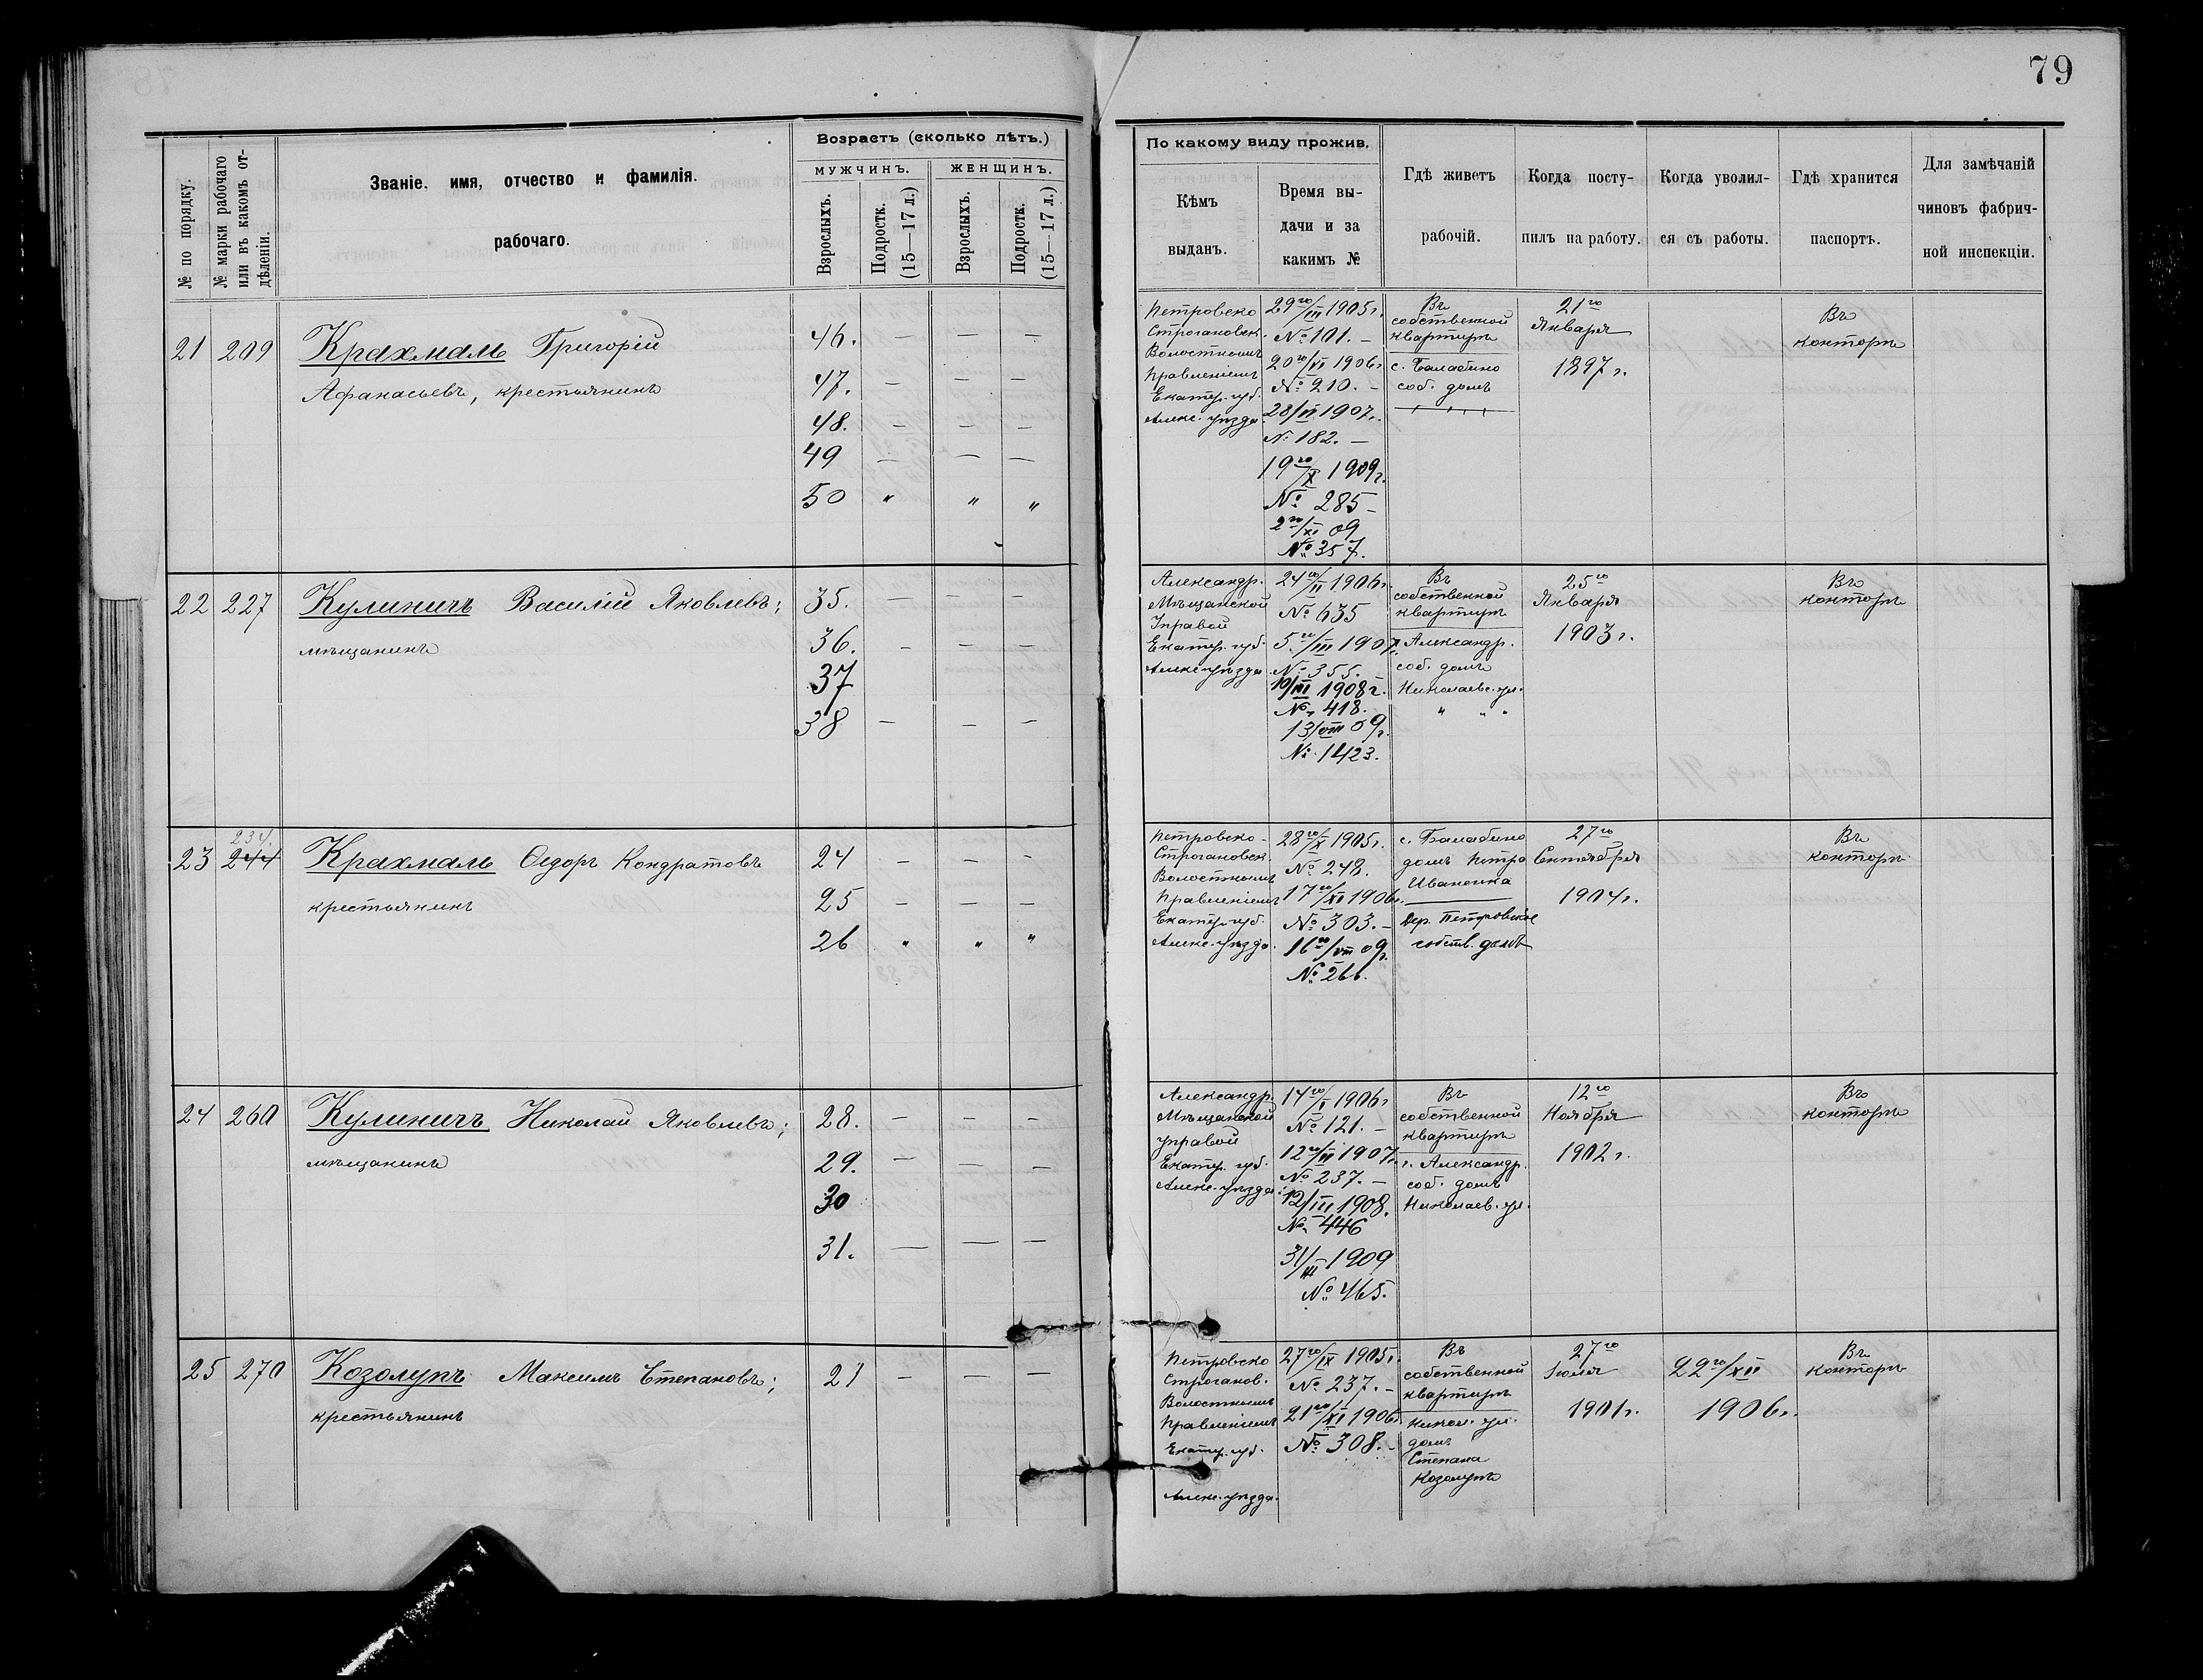 79
Возрастъ (сколько лѣтъ.)
МУЖЧИНЪ. ЖЕНЩИНЪ.
№ по порядку.
№ марки рабочаго
или въ какомъ от-
дѣленіи.
Званіе, имя, отчество и фамилія.
рабочаго.
Взрослыхъ.
Подростк.
(15—17 л.)
Взрослыхъ.
Подростк.
(15—17 л.)
По какому виду прожив.
Кѣмъ
выданъ.
Время вы-
дачи и за
какимъ №
Гдѣ живетъ
рабочій.
Когда посту-
пилъ на работу.
Когда уволил-
ся съ работы.
Гдѣ хранится
паспортъ.
Для замѣчаній
чиновъ фабрич-
ной инспекціи.
21 209 Крахмаль Григорій
Афанасьевъ, крестьянинъ
46. — — —
47. — — —
48. — — —
49 — — —
50 " " "
Петровско
Строгановск.
Волостнымъ
Правленіемъ
Екатер. губ.
Алекс. уѣзда.
29го/III 1905г.
№ 101. —
20го/VI 1906г.
№ 210. —
28/VI 1907г.
№ 182. —
19го/X 1909г.
№ 285 —
2го/XI 09
№ 357.
Въ
собственной
квартирѣ
с. Балабино
соб. домъ
21го
Января
1897 г.
Въ
конторѣ
22 227 Кулиничъ Василій Яковлевъ;
мѣщанинъ
35. — — —
36. — — —
37
38 — — —
Александр.
Мѣщанской
Управой
Екатер. губ.
Алекс. уѣзда
24го/II 1906г.
№ 635
5го/III 1907г.
№ 355.
10/III 1908 г.
№ 418.
13/VIII 09г.
№ 1423.
Въ
собственной
квартирѣ
г. Александр.
соб. домъ
Николаевс. ул.
" " "
25го
Января
1903 г.
Въ
конторѣ
234.
23 244 Крахмаль Ѳедоръ Кондратовъ
крестьянинъ
24 — — —
25 — — —
26 " " "
Петровско-
Строгановск.
Волостнымъ
Правленіемъ
Екатер. губ.
Алекс. уѣзда.
28го/X 1905г.
№ 248.
17го/XI 1906г.
№ 303. —
16го/VIII 09г.
№ 266.
с. Балабино
домъ Петра
Иваненка
Дер. Петровское
собств. домъ
27го
Сентября
1904г.
Въ
конторѣ
24 260 Кулиничъ Николай Яковлевъ;
мѣщанинъ
28. — — —
29. — — —
30
31. — — —
Александр.
Мѣщанской
управой
Екатер. губ.
Алекс. уѣзда.
14го/I 1906г
№ 121. —
12го/III 1907г.
№ 237. —
12/III 1908.
№ 446
31/III 1909
№ 465.
Въ
собственной
квартирѣ
г. Александр.
соб. домъ
Николаев. ул.
12го
Ноября
1902 г.
Въ
конторѣ
25 270 Козолупъ Максимъ Степановъ;
крестьянинъ
21 — — —
Петровско
Строганов.
Волостнымъ
Правленіемъ
Екатер. губ.
Алекс. уѣзда.
27го/IX 1905г.
№ 237. —
21го/XI 1906г.
№ 308. —
Въ
собственной
квартирѣ
Никол. ул.
домъ
Степана
Козолупа
27го
Іюля
1901г.
22го/XII
1906г.
Въ
конторѣ